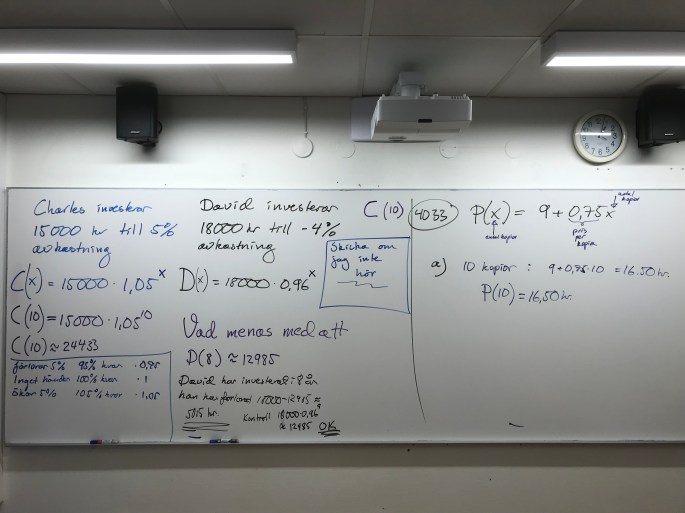 Charles investerar
15000 kr till 5%
avkastning
C(x) = 15000 · 1,05^x
C(10) = 15000 · 1,05^10
C(10) ≈ 24433
förlorar 5% 95% kvar · 0,95
Inget händer 100% kvar · 1
Ökar 5% 105% kvar · 1,05
David investerar
18000 kr till -4%
avkastning
D(x) = 18000 · 0,96^x
C(10)
Skicka om
jag inte
hör
Vad menas med att
D(8) ≈ 12985
David har investerat i 8 år
han har förlorat 18000-12985 ≈
5015 kr.
Kontroll 18000·0,96^8
≈ 12985 OK
4033 P(x) = 9 + 0,75x
antal kopior
antal kopior
pris per kopia
a) 10 kopior : 9+0,75·10 = 16,50 kr.
P(10) = 16,50 kr.